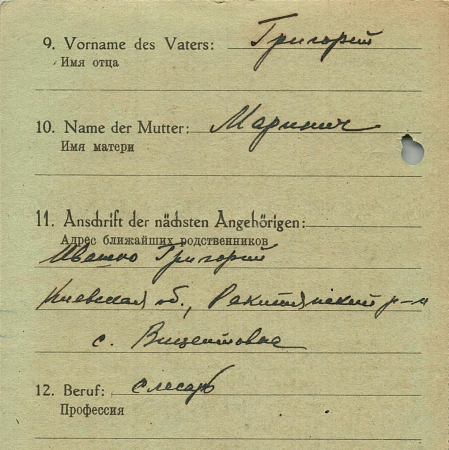 9. Vorname des Vaters: Григорий
Имя отца
10. Name der Mutter: Маринич
Имя матери
11. Anschrift der nächsten Angehörigen:
Адрес ближайших родственников
Ивашко Григорий
Киевская об., Ракитянский р-н
с.
12. Beruf: слесарь
Профессия